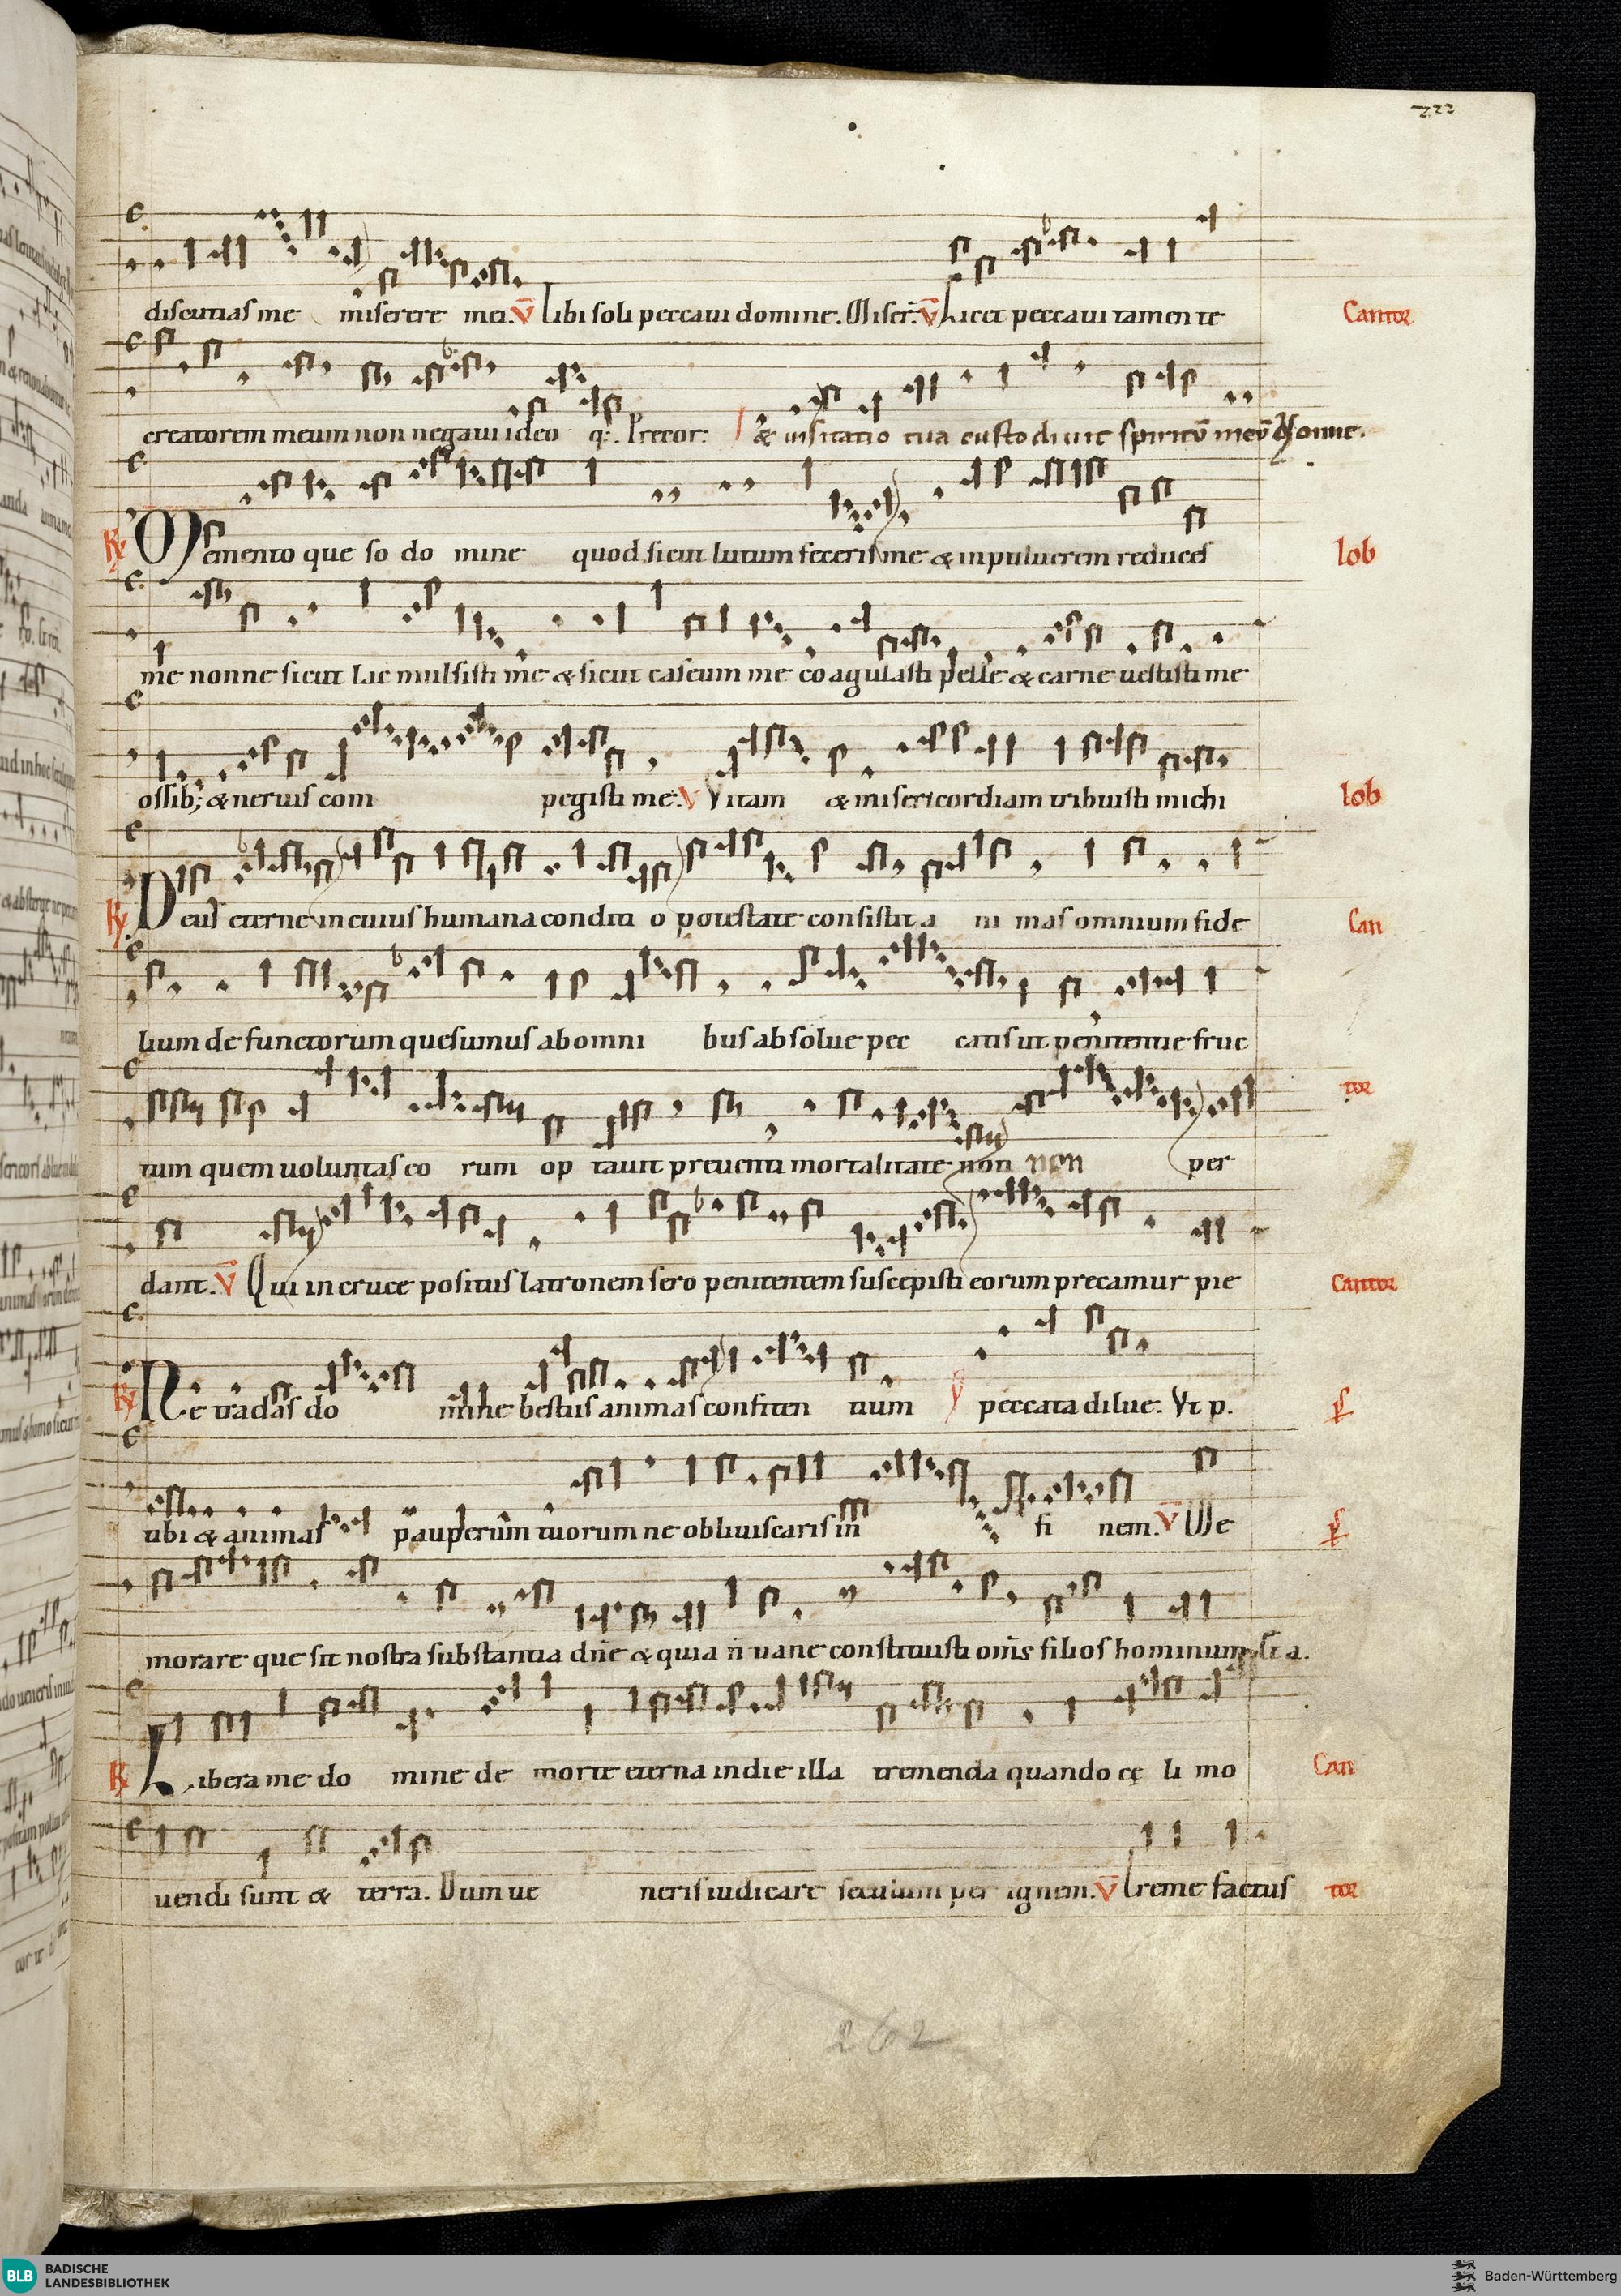 222
discutias me miserere mei. V Tibi soli peccaui domine. Miser. V Licet peccaui tamen te Cantor
creatorem meum non negaui ideo q:. Precor: & uisitatio tua custodiuit spiritū meū Nonne.
R Memento que so do mine quod sicut lutum feceris me & in puluerem reduces Iob
me nonne sicut lac mulsisti me & sicut caseum me co agulasti pelle & carne uestisti me
ossib; & neruis com pegisti me. V Vitam & misericordiam tribuisti michi Iob
R Deus eterne in cuius humana conditi o potestate consistit a ni mas omnium fide Can
lium de functorum quesumus ab omni bus absolue pec catis ut penitentie fruc
tum quem uoluntas eo rum op tauit preuenti mortalitate non non per tor
dant. V Qui in cruce positus latronem sero penitentem suscepisti eorum precamur pie Cantor
R Ne tradas do mine bestiis animas confiten tium peccata dilue. Vt p. ps
tibi & animas pauperum tuorum ne obliuiscaris in fi nem. V Me ps
morare que sit nostra substantia dn̄e & quia n̄ uane constituisti om̄s filios hominum
R Libera me do mine de morte eterna in die illa tremenda quando cę li mo Can
uendi sunt & terra. Dum ue neris iudicare seculum per ignem. V Treme factus tor
262
BLB BADISCHE
LANDESBIBLIOTHEK
Baden-Württemberg